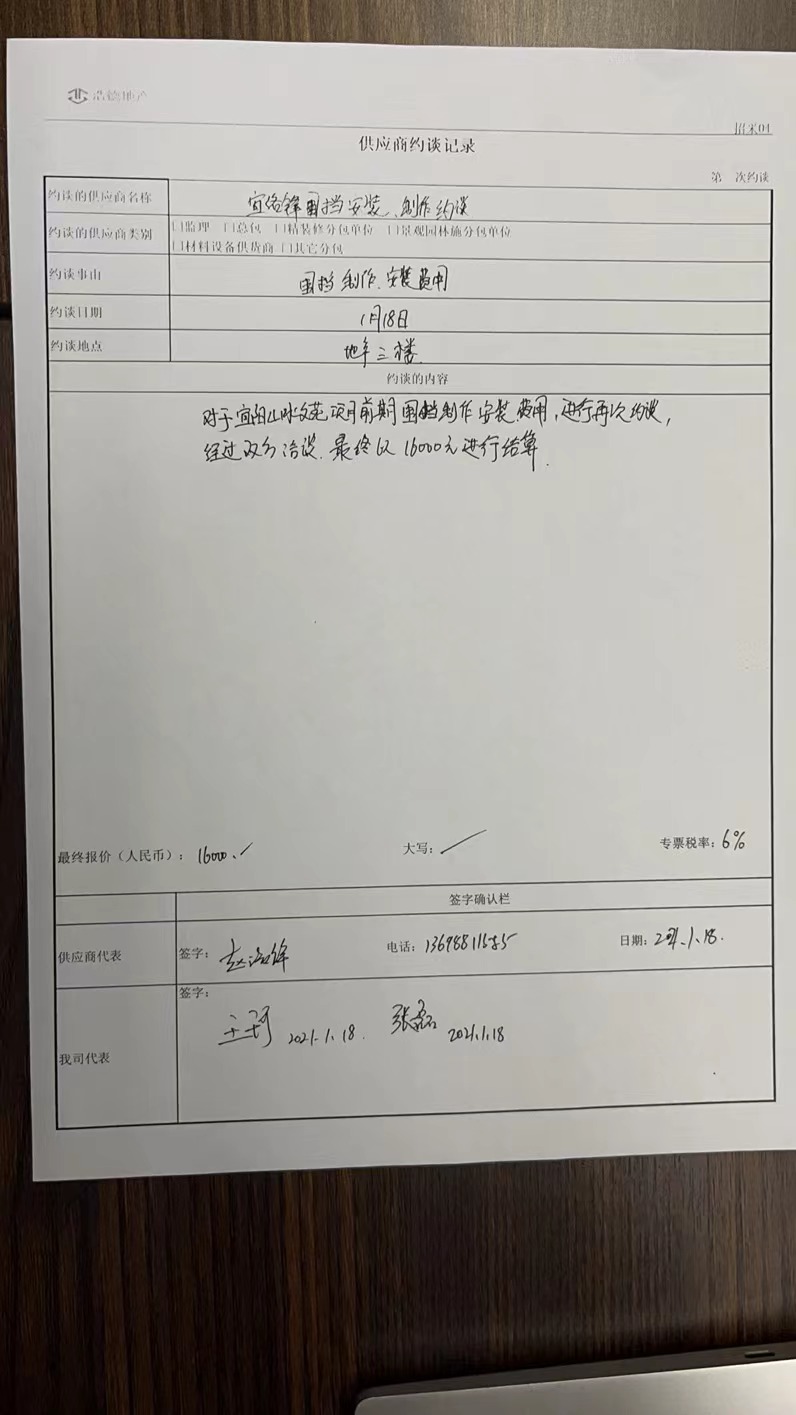 浩德地产
招采04
供应商约谈记录
第 次约谈
约谈的供应商名称 宜洛锋围挡安装、制作约谈
约谈的供应商类别 □监理 □总包 □精装修分包单位 □景观园林施分包单位
□材料设备供货商 □其它分包
约谈事由 围挡制作、安装费用
约谈日期 1月18日
约谈地点 三楼
约谈的内容
对于宜阳山水文苑项目前期围挡制作安装费用,进行再次约谈,
经过双方洽谈.最终以16000元进行结算.
最终报价(人民币): 16000. 大写: 专票税率: 6%
签字确认栏
供应商代表 签字: 赵洛锋 电话: 日期: 2021.1.18.
签字:
王珂 2021.1.18. 张磊 2021.1.18
我司代表